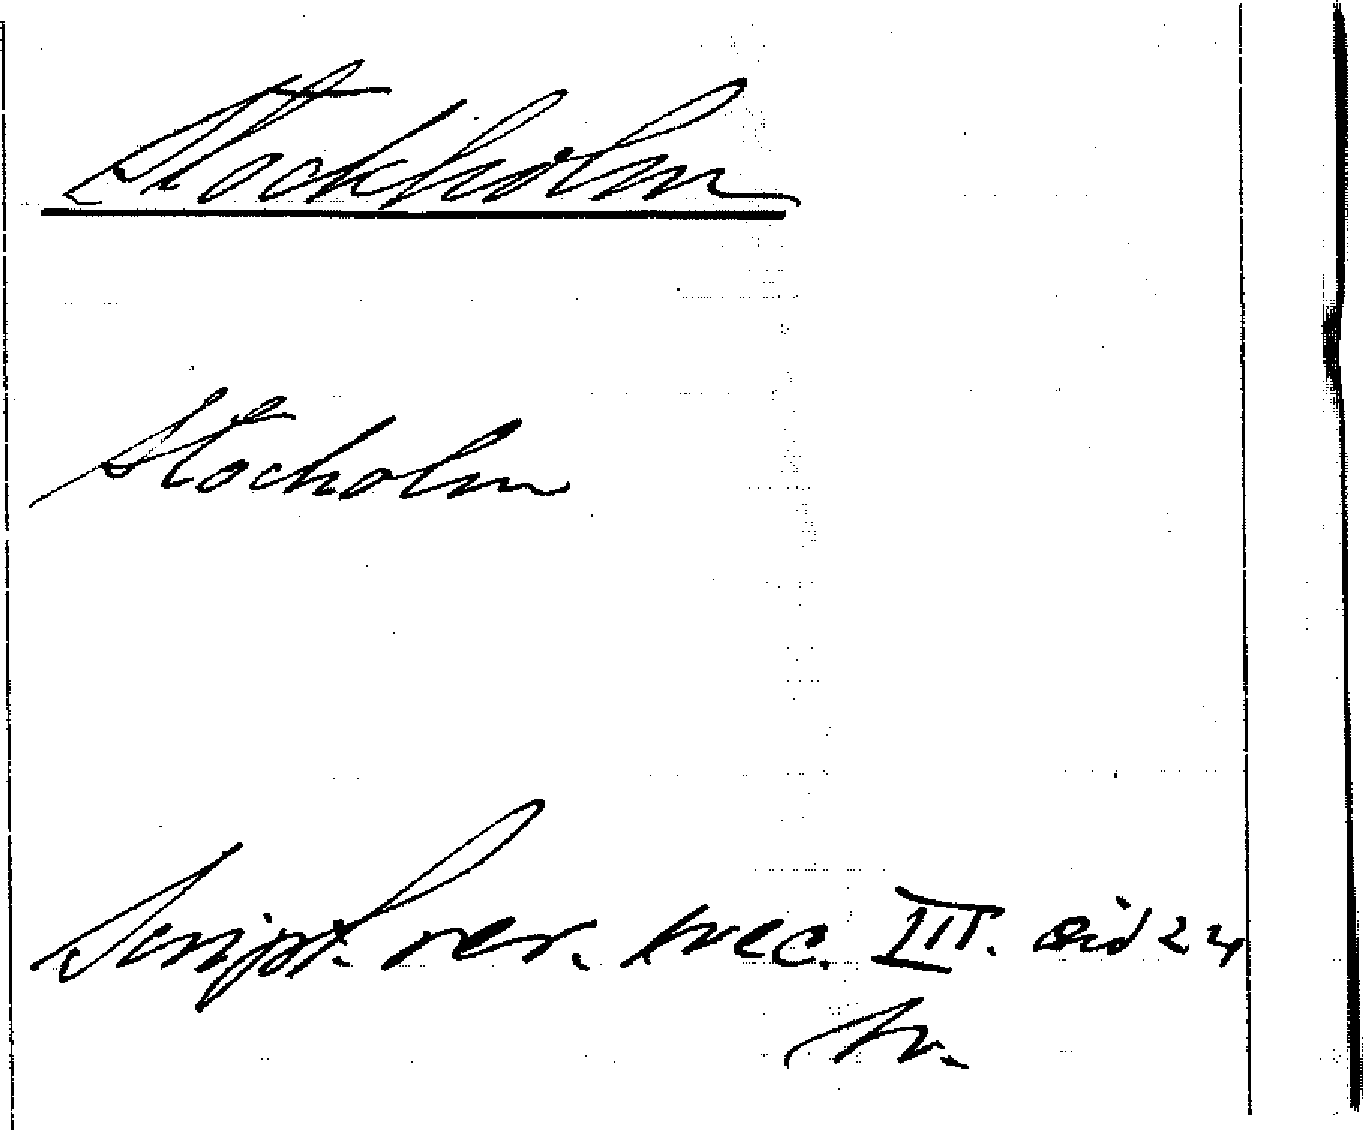 Stockholm
Stocholm
Script. rer. svec. III. sid 24